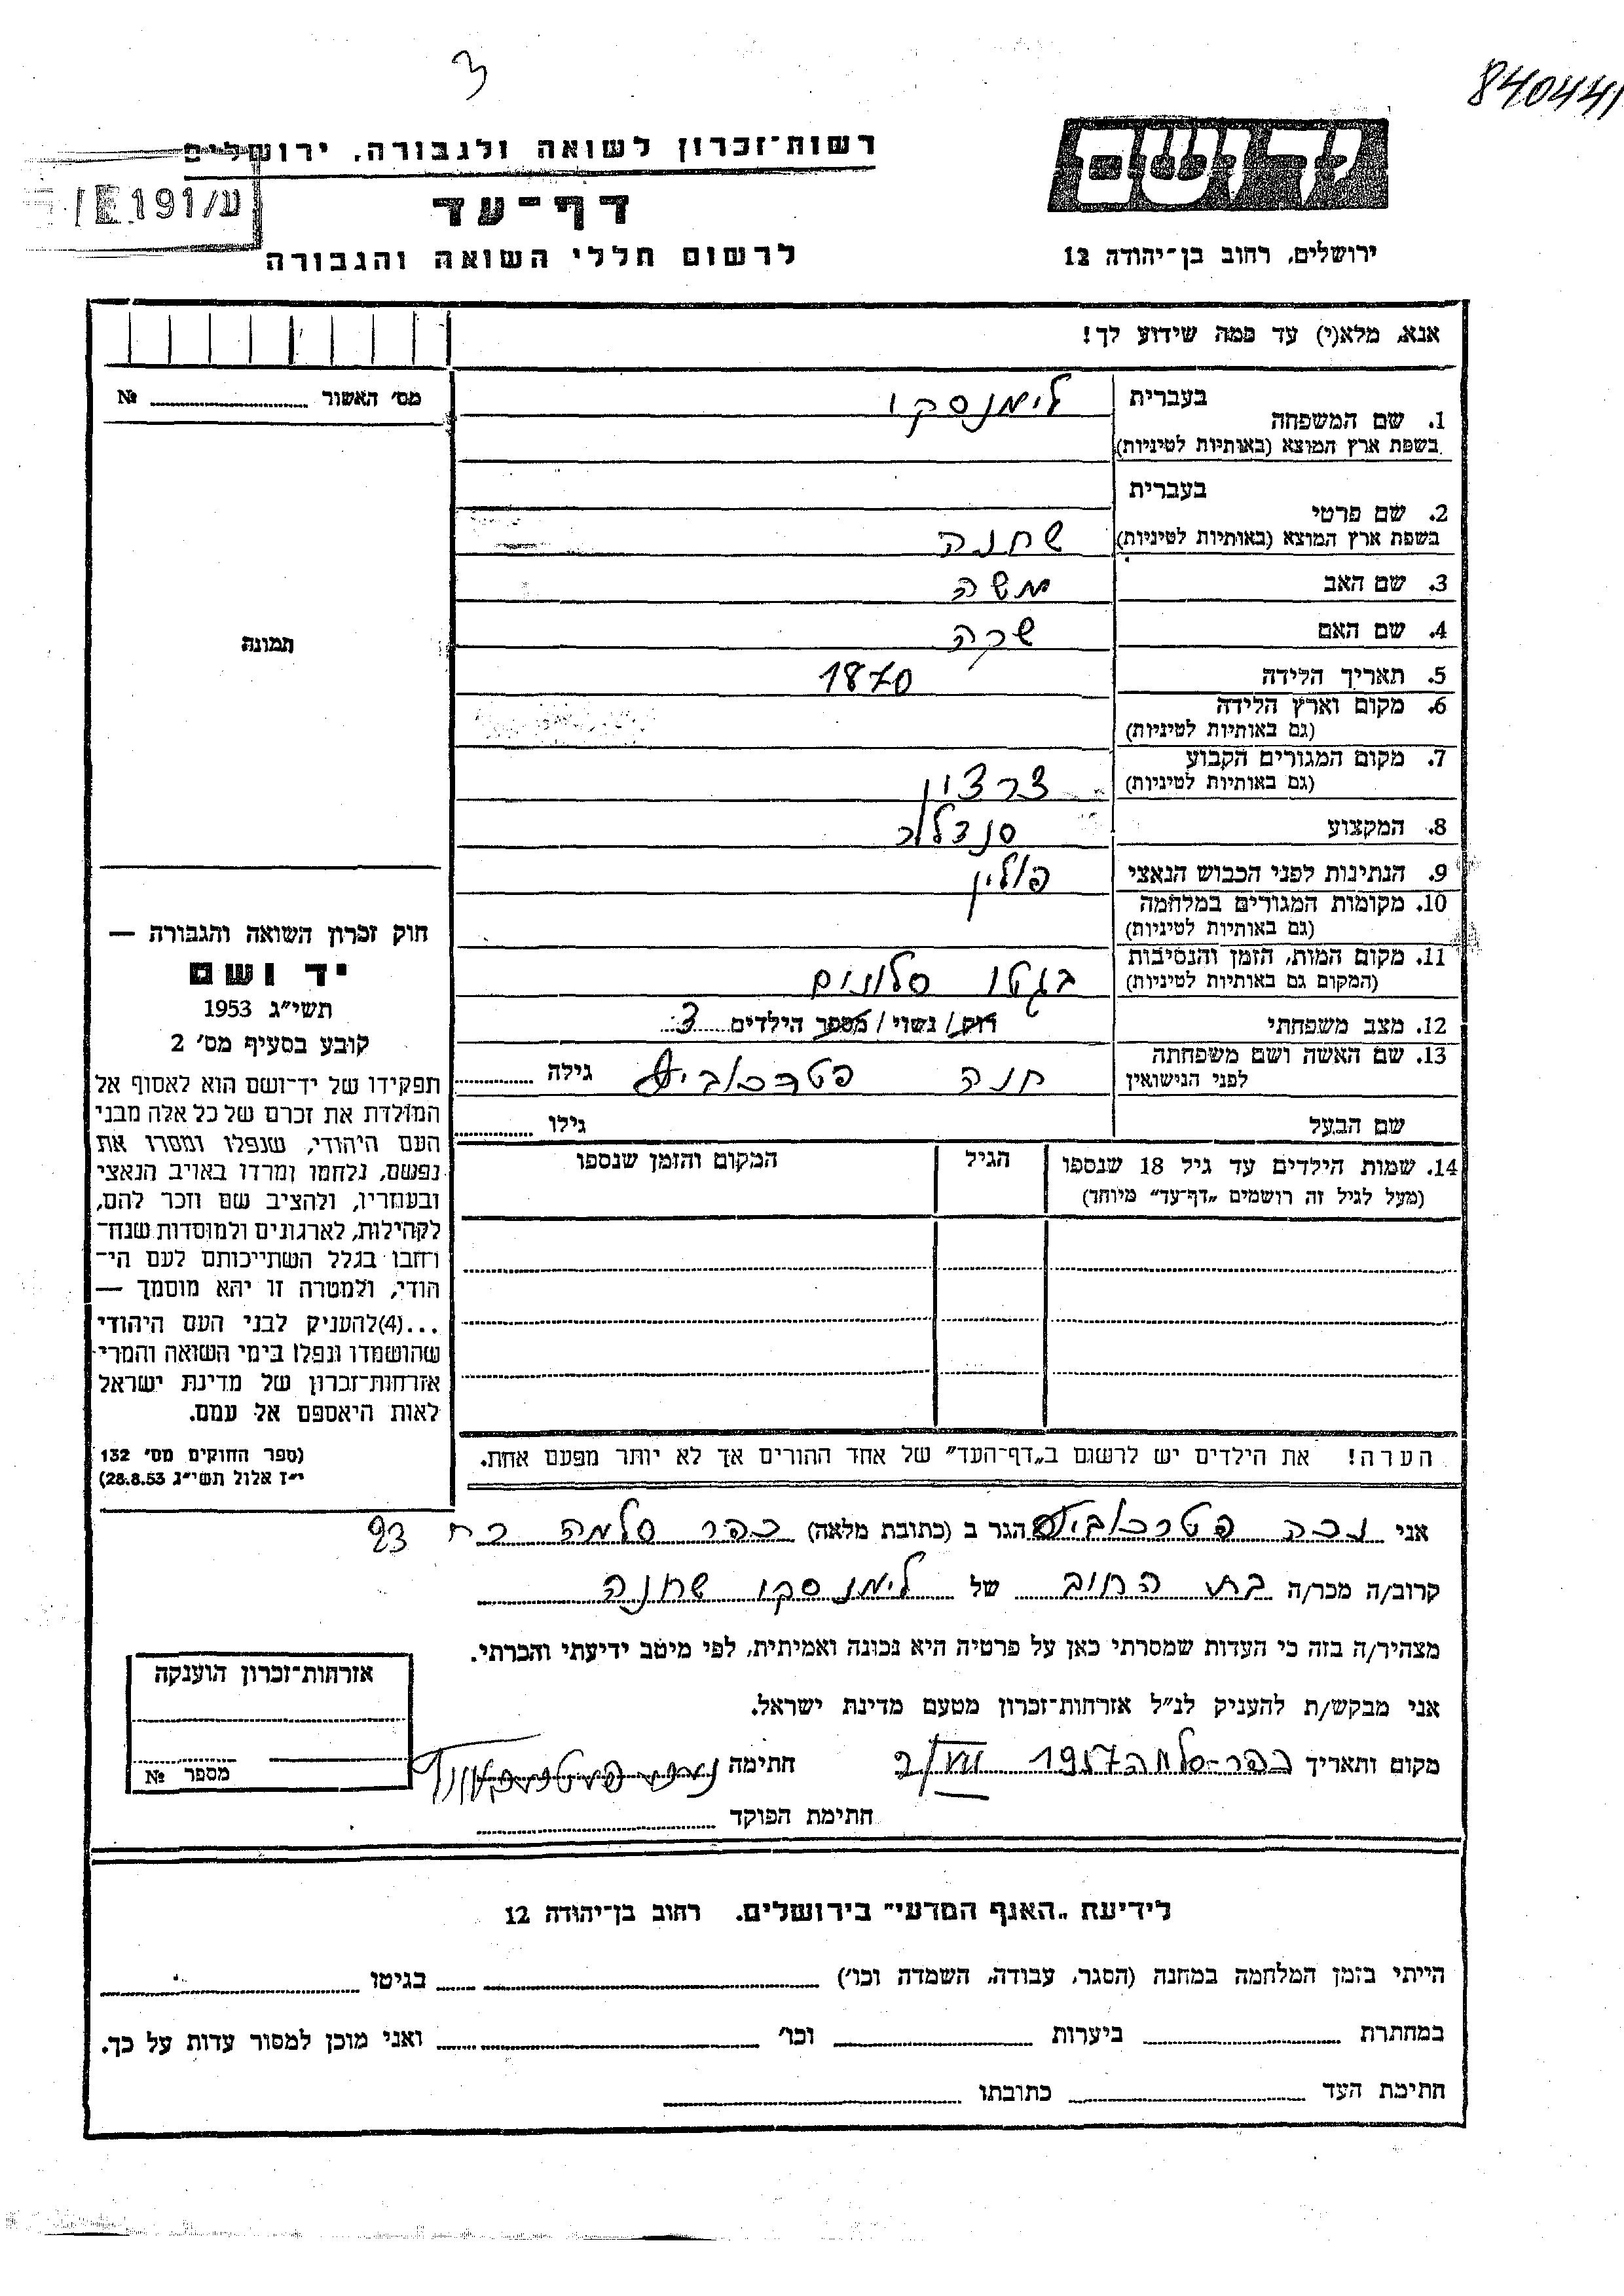 3
840441
יד ושם
רשות־זכרון לשואה ולגבורה, ירושלים
ע/191
דף־עד
לרשום חללי השואה והגבורה
ירושלים, רחוב בן־יהודה 12
אנא, מלא(י) עד כמה שידוע לך!
מס' האשור № 
1. שם המשפחה בעברית לימנסקי
בשפת ארץ המוצא (באותיות לטיניות)
2. שם פרטי בעברית
בשפת ארץ המוצא (באותיות לטיניות) שחנה
3. שם האב משה
4. שם האם שרה
5. תאריך הלידה 1870
6. מקום וארץ הלידה
(גם באותיות לטיניות)
7. מקום המגורים הקבוע
(גם באותיות לטיניות)
8. המקצוע סנדלר
9. הנתינות לפני הכבוש הנאצי פולין
10. מקומות המגורים במלחמה
(גם באותיות לטיניות)
11. מקום המות, הזמן והנסיבות
(המקום גם באותיות לטיניות) בגטו סלונים
12. מצב משפחתי רוק/ נשוי/ מספר הילדים 3
13. שם האשה ושם משפחתה
לפני הנישואין חנה גילה
שם הבעל גילו
14. שמות הילדים עד גיל 18 שנספו הגיל המקום והזמן שנספו
(מעל לגיל זה רושמים „דף־עד” מיוחד)
הערה! את הילדים יש לרשום ב„דף־העד” של אחד ההורים אך לא יותר מפעם אחת.
תמונה
חוק זכרון השואה והגבורה —
יד ושם
תשי״ג 1953
קובע בסעיף מס' 2
תפקידו של יד־ושם הוא לאסוף אל
המולדת את זכרם של כל אלה מבני
העם היהודי, שנפלו ומסרו את
נפשם, נלחמו ומרדו באויב הנאצי
ובעוזריו, ולהציב שם וזכר להם,
לקהילות, לארגונים ולמוסדות שנח־
רחבו בגלל השתייכותם לעם הי־
הודי, ולמטרה זו יהא מוסמך —
...(4)להעניק לבני העם היהודי
שהושמדו ונפלו בימי השואה והמרי
אזרחות־זכרון של מדינת ישראל
לאות היאספם אל עמם.
(ספר החוקים מס' 132
י״ז אלול תשי״ג 28.8.53)
אני הגר ב (כתובת מלאה) כפר סלמה 93
קרוב/ה מכר/ה בת החוב של לימנסקי שחנה
מצהיר/ה בזה כי העדות שמסרתי כאן על פרטיה היא נכונה ואמיתית, לפי מיטב ידיעתי והכרתי.
אני מבקש/ת להעניק לנ״ל אזרחות־זכרון מטעם מדינת ישראל.
מקום ותאריך כפר־סלמה 1957 חתימה
חתימת הפוקד
אזרחות־זכרון הוענקה
מספר №
לידיעת „האגף המדעי” בירושלים. רחוב בן־יהודה 12
הייתי בזמן המלחמה במחנה (הסגר, עבודה, השמדה וכו') בגיטו
במחתרת ביערות וכו' ואני מוכן למסור עדות על כך.
חתימת העד כתובתו